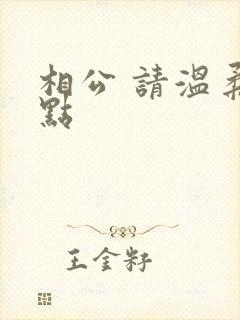 相公 請溫柔
點
王金籽